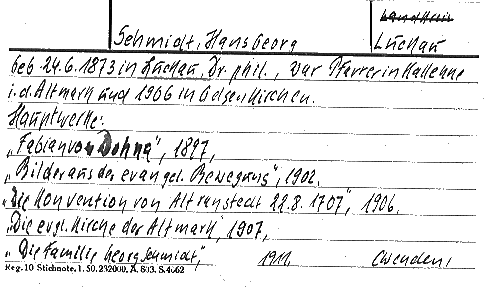 Landkreis
Schmidt, Hans Georg Luckau
geb 24.6.1873 in Luckau, Dr. phil., war Pfarrer in Kallehne
i.d. Altmark und 1906 in Gelsenkirchen.
Hauptwerke:
„Fabian von Dohna", 1897,
„Bilder aus der evangel. Bewegung", 1902.
„Die Konvention von Altranstedt 22.8.1707", 1906.
„Die evgl. Kirche der Altmark", 1907,
„Die Familie Georg Schmidt", 1911.
Reg. 10 Stichnote. 1. 50. 232000. A. 803. S. 4/62